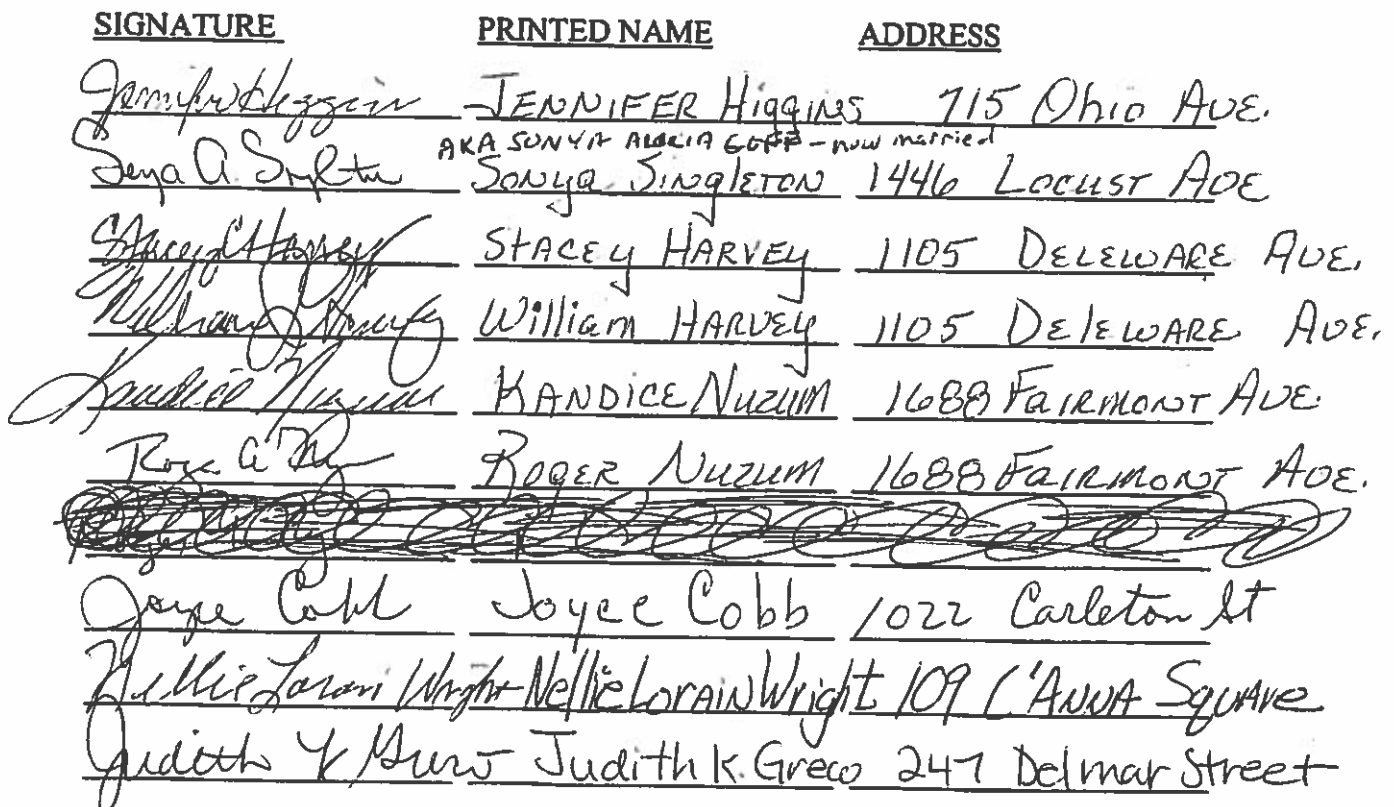 SIGNATURE PRINTED NAME ADDRESS
Jennifer Higgins JENNIFER HIGGINS 715 Ohio AVE.
AKA SONYA - now married
Sonya A. Singleton SONYA SINGLETON 1446 LOCUST AVE
Stacey Harvey STACEY HARVEY 1105 DELEWARE AVE.
William Harvey William HARVEY 1105 DELEWARE AVE.
Kandice Nuzum KANDICE NUZUM 1688 FAIRMONT AVE.
Roger A ROGER NUZUM 1688 FAIRMONT AVE.
Joyce Cobb Joyce Cobb 1022 Carleton St
Nellie Lorain Wright Nellie LORAIN Wright 109 ANNA SQUARE
Judith K Greco Judith K. Greco 247 Delmar Street